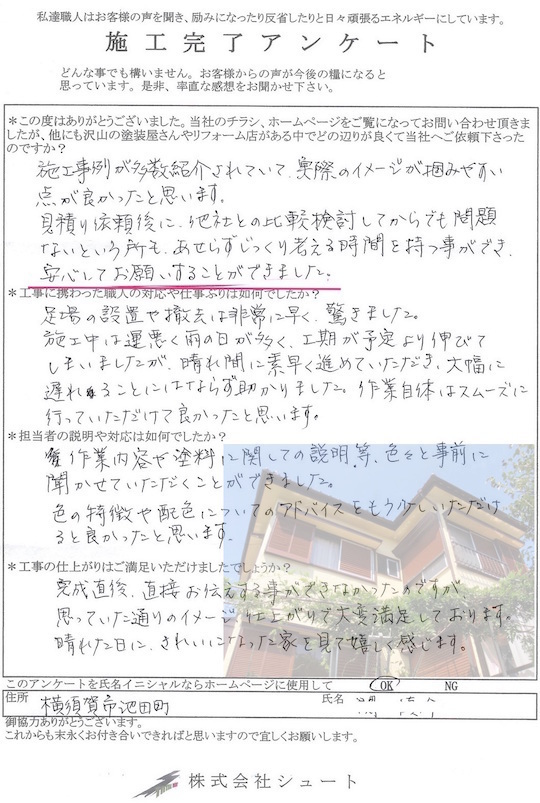 私達職人はお客様の声を聞き、励みになったり反省したりと日々頑張るエネルギーにしています。
施工完了アンケート
どんな事でも構いません。お客様からの声が今後の糧になると
思っています。是非、率直な感想をお聞かせ下さい。
＊この度はありがとうございました。当社のチラシ、ホームページをご覧になってお問い合わせ頂きま
したが、他にも沢山の塗装屋さんやリフォーム店がある中でどの辺りが良くて当社へご依頼下さった
のですか？
施工事例が多数紹介されていて、実際のイメージが掴みやすい
点が良かったと思います。
見積り依頼後に、他社との比較検討してからでも問題
ないという所も、あせらずじっくり考える時間を持つ事ができ、
安心してお願いすることができました。
＊工事に携わった職人の対応や仕事ぶりは如何でしたか？
足場の設置や撤去は非常に早く、驚きました。
施工中は運悪く雨の日が多く、工期が予定より伸びて
しまいましたが、晴れ間に素早く進めていただき、大幅に
遅れることにはならず助かりました。作業自体はスムーズに
行っていただけて良かったと思います。
＊担当者の説明や対応は如何でしたか？
作業内容や塗料に関しての説明等、色々と事前に
聞かせていただくことができました。
色の特徴や配色についてのアドバイスをもう少しいただけ
ると良かったと思います。
＊工事の仕上がりはご満足いただけましたでしょうか？
完成直後、直接お伝えする事ができなかったのですが、
思っていた通りのイメージ、仕上がりで大変満足しております。
晴れた日に、きれいになった家を見て嬉しく感じます。
このアンケートを氏名イニシャルならホームページに使用して OK NG
住所 横須賀市池田町 氏名
御協力ありがとうございます。
これからも末永くお付き合いできればと思いますので宜しくお願いします。
株式会社シュート